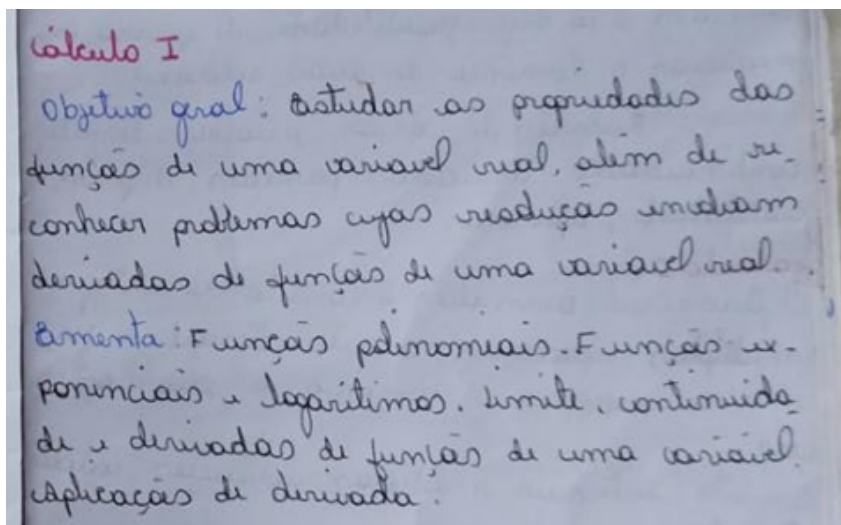 Cálculo I
Objetivo geral: Estudar as propriedades das
função de uma variavel real, além de re-
conhecer problemas cujas resolução envolvam
derivadas de função de uma variavel real.
Ementa: Funções polinomiais. Funções ex-
ponenciais e logaritimos. Limite, continuida
de e derivadas de função de uma variável.
Aplicação de derivada.